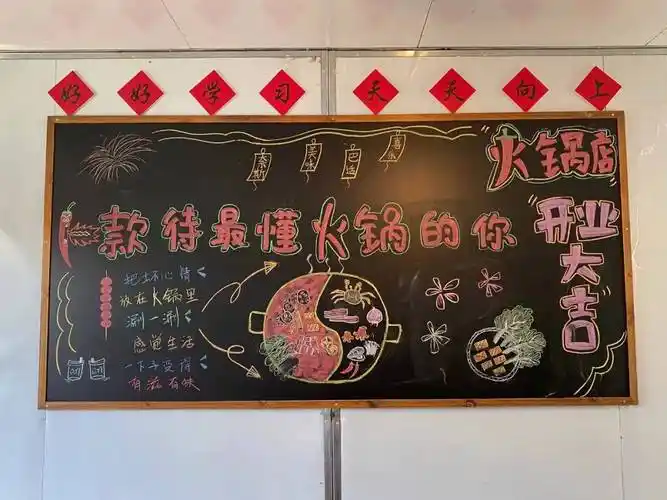 好好学习天天向上
火锅店
开业
大吉
款待最懂火锅的你
把坏心情
放在火锅里
涮一涮
感觉生活
一下子变得
有滋有味